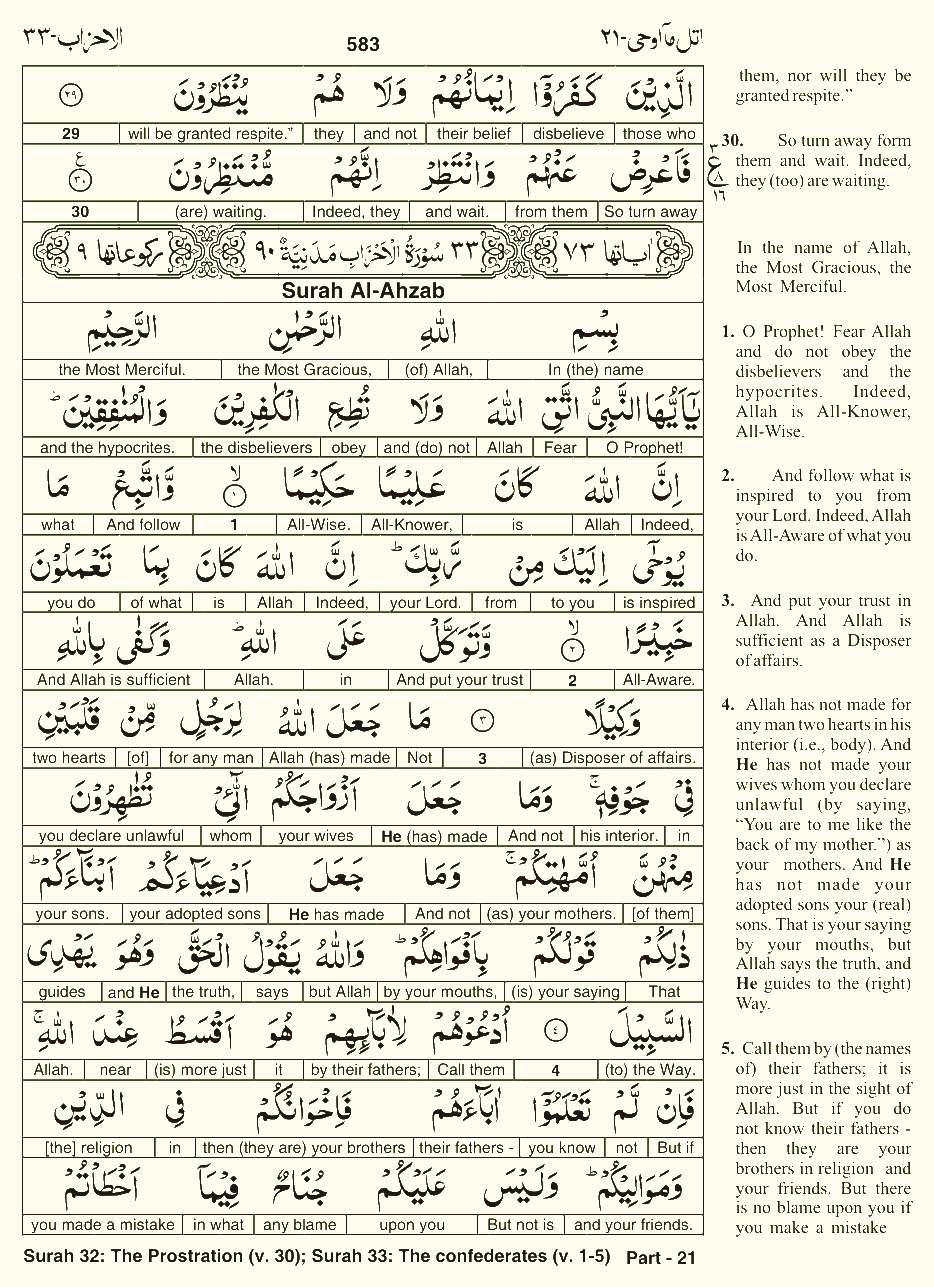 اتل مآاوحی-۲۱ 583 الاحزاب-۳۳
الَّذِيْنَ كَفَرُوْۤا اِيْمَانُهُمْ وَلَا هُمْ يُنْظَرُوْنَ ۲۹
those who disbelieve their belief and not they will be granted respite.” 29
فَاَعْرِضْ عَنْهُمْ وَانْتَظِرْ اِنَّهُمْ مُّنْتَظِرُوْنَ ع ۳۰
So turn away from them and wait. Indeed, they (are) waiting. 30
اٰیاتها ۷۳ ۳۳ سُوْرَةُ الْاَحْزَابِ مَدَنِيَّةٌ ۹۰ رکوعاتها ۹
Surah Al-Ahzab
بِسْمِ اللّٰهِ الرَّحْمٰنِ الرَّحِيْمِ
In (the) name (of) Allah, the Most Gracious, the Most Merciful.
يٰۤاَيُّهَا النَّبِيُّ اتَّقِ اللّٰهَ وَلَا تُطِعِ الْكٰفِرِيْنَ وَالْمُنٰفِقِيْنَ ؕ
O Prophet! Fear Allah and (do) not obey the disbelievers and the hypocrites.
اِنَّ اللّٰهَ كَانَ عَلِيْمًا حَكِيْمًا ۙ ۱ وَّاتَّبِعْ مَا
Indeed, Allah is All-Knower, All-Wise. 1 And follow what
يُوْحٰۤى اِلَيْكَ مِنْ رَّبِّكَ ؕ اِنَّ اللّٰهَ كَانَ بِمَا تَعْمَلُوْنَ
is inspired to you from your Lord. Indeed, Allah is of what you do
خَبِيْرًا ۙ ۲ وَّتَوَكَّلْ عَلَى اللّٰهِ ؕ وَكَفٰى بِاللّٰهِ
All-Aware. 2 And put your trust in Allah. And Allah is sufficient
وَكِيْلًا ۳ مَا جَعَلَ اللّٰهُ لِرَجُلٍ مِّنْ قَلْبَيْنِ
(as) Disposer of affairs. 3 Not Allah (has) made for any man [of] two hearts
فِيْ جَوْفِهٖ ۚ وَمَا جَعَلَ اَزْوَاجَكُمُ الّٰٓـِٔيْ تُظٰهِرُوْنَ
in his interior. And not He (has) made your wives whom you declare unlawful
مِنْهُنَّ اُمَّهٰتِكُمْ ۚ وَمَا جَعَلَ اَدْعِيَآءَكُمْ اَبْنَآءَكُمْ ؕ
[of them] (as) your mothers. And not He has made your adopted sons your sons.
ذٰلِكُمْ قَوْلُكُمْ بِاَفْوَاهِكُمْ ؕ وَاللّٰهُ يَقُوْلُ الْحَقَّ وَهُوَ يَهْدِى
That (is) your saying by your mouths, but Allah says the truth, and He guides
السَّبِيْلَ ۴ اُدْعُوْهُمْ لِاٰبَآئِهِمْ هُوَ اَقْسَطُ عِنْدَ اللّٰهِ ۚ
(to) the Way. 4 Call them by their fathers; it (is) more just near Allah.
فَاِنْ لَّمْ تَعْلَمُوْۤا اٰبَآءَهُمْ فَاِخْوَانُكُمْ فِى الدِّيْنِ
But if not you know their fathers - then (they are) your brothers in [the] religion
وَمَوَالِيْكُمْ ؕ وَلَيْسَ عَلَيْكُمْ جُنَاحٌ فِيْمَاۤ اَخْطَاْتُمْ
and your friends. But not is upon you any blame in what you made a mistake
them, nor will they be
granted respite.”
۳ ع ۸ ۱۶
30. So turn away form
them and wait. Indeed,
they (too) are waiting.
In the name of Allah,
the Most Gracious, the
Most Merciful.
1. O Prophet! Fear Allah
and do not obey the
disbelievers and the
hypocrites. Indeed,
Allah is All-Knower,
All-Wise.
2. And follow what is
inspired to you from
your Lord. Indeed, Allah
is All-Aware of what you
do.
3. And put your trust in
Allah. And Allah is
sufficient as a Disposer
of affairs.
4. Allah has not made for
any man two hearts in his
interior (i.e., body). And
He has not made your
wives whom you declare
unlawful (by saying,
“You are to me like the
back of my mother.”) as
your mothers. And He
has not made your
adopted sons your (real)
sons. That is your saying
by your mouths, but
Allah says the truth, and
He guides to the (right)
Way.
5. Call them by (the names
of) their fathers; it is
more just in the sight of
Allah. But if you do
not know their fathers -
then they are your
brothers in religion and
your friends. But there
is no blame upon you if
you make a mistake
Surah 32: The Prostration (v. 30); Surah 33: The confederates (v. 1-5) Part - 21